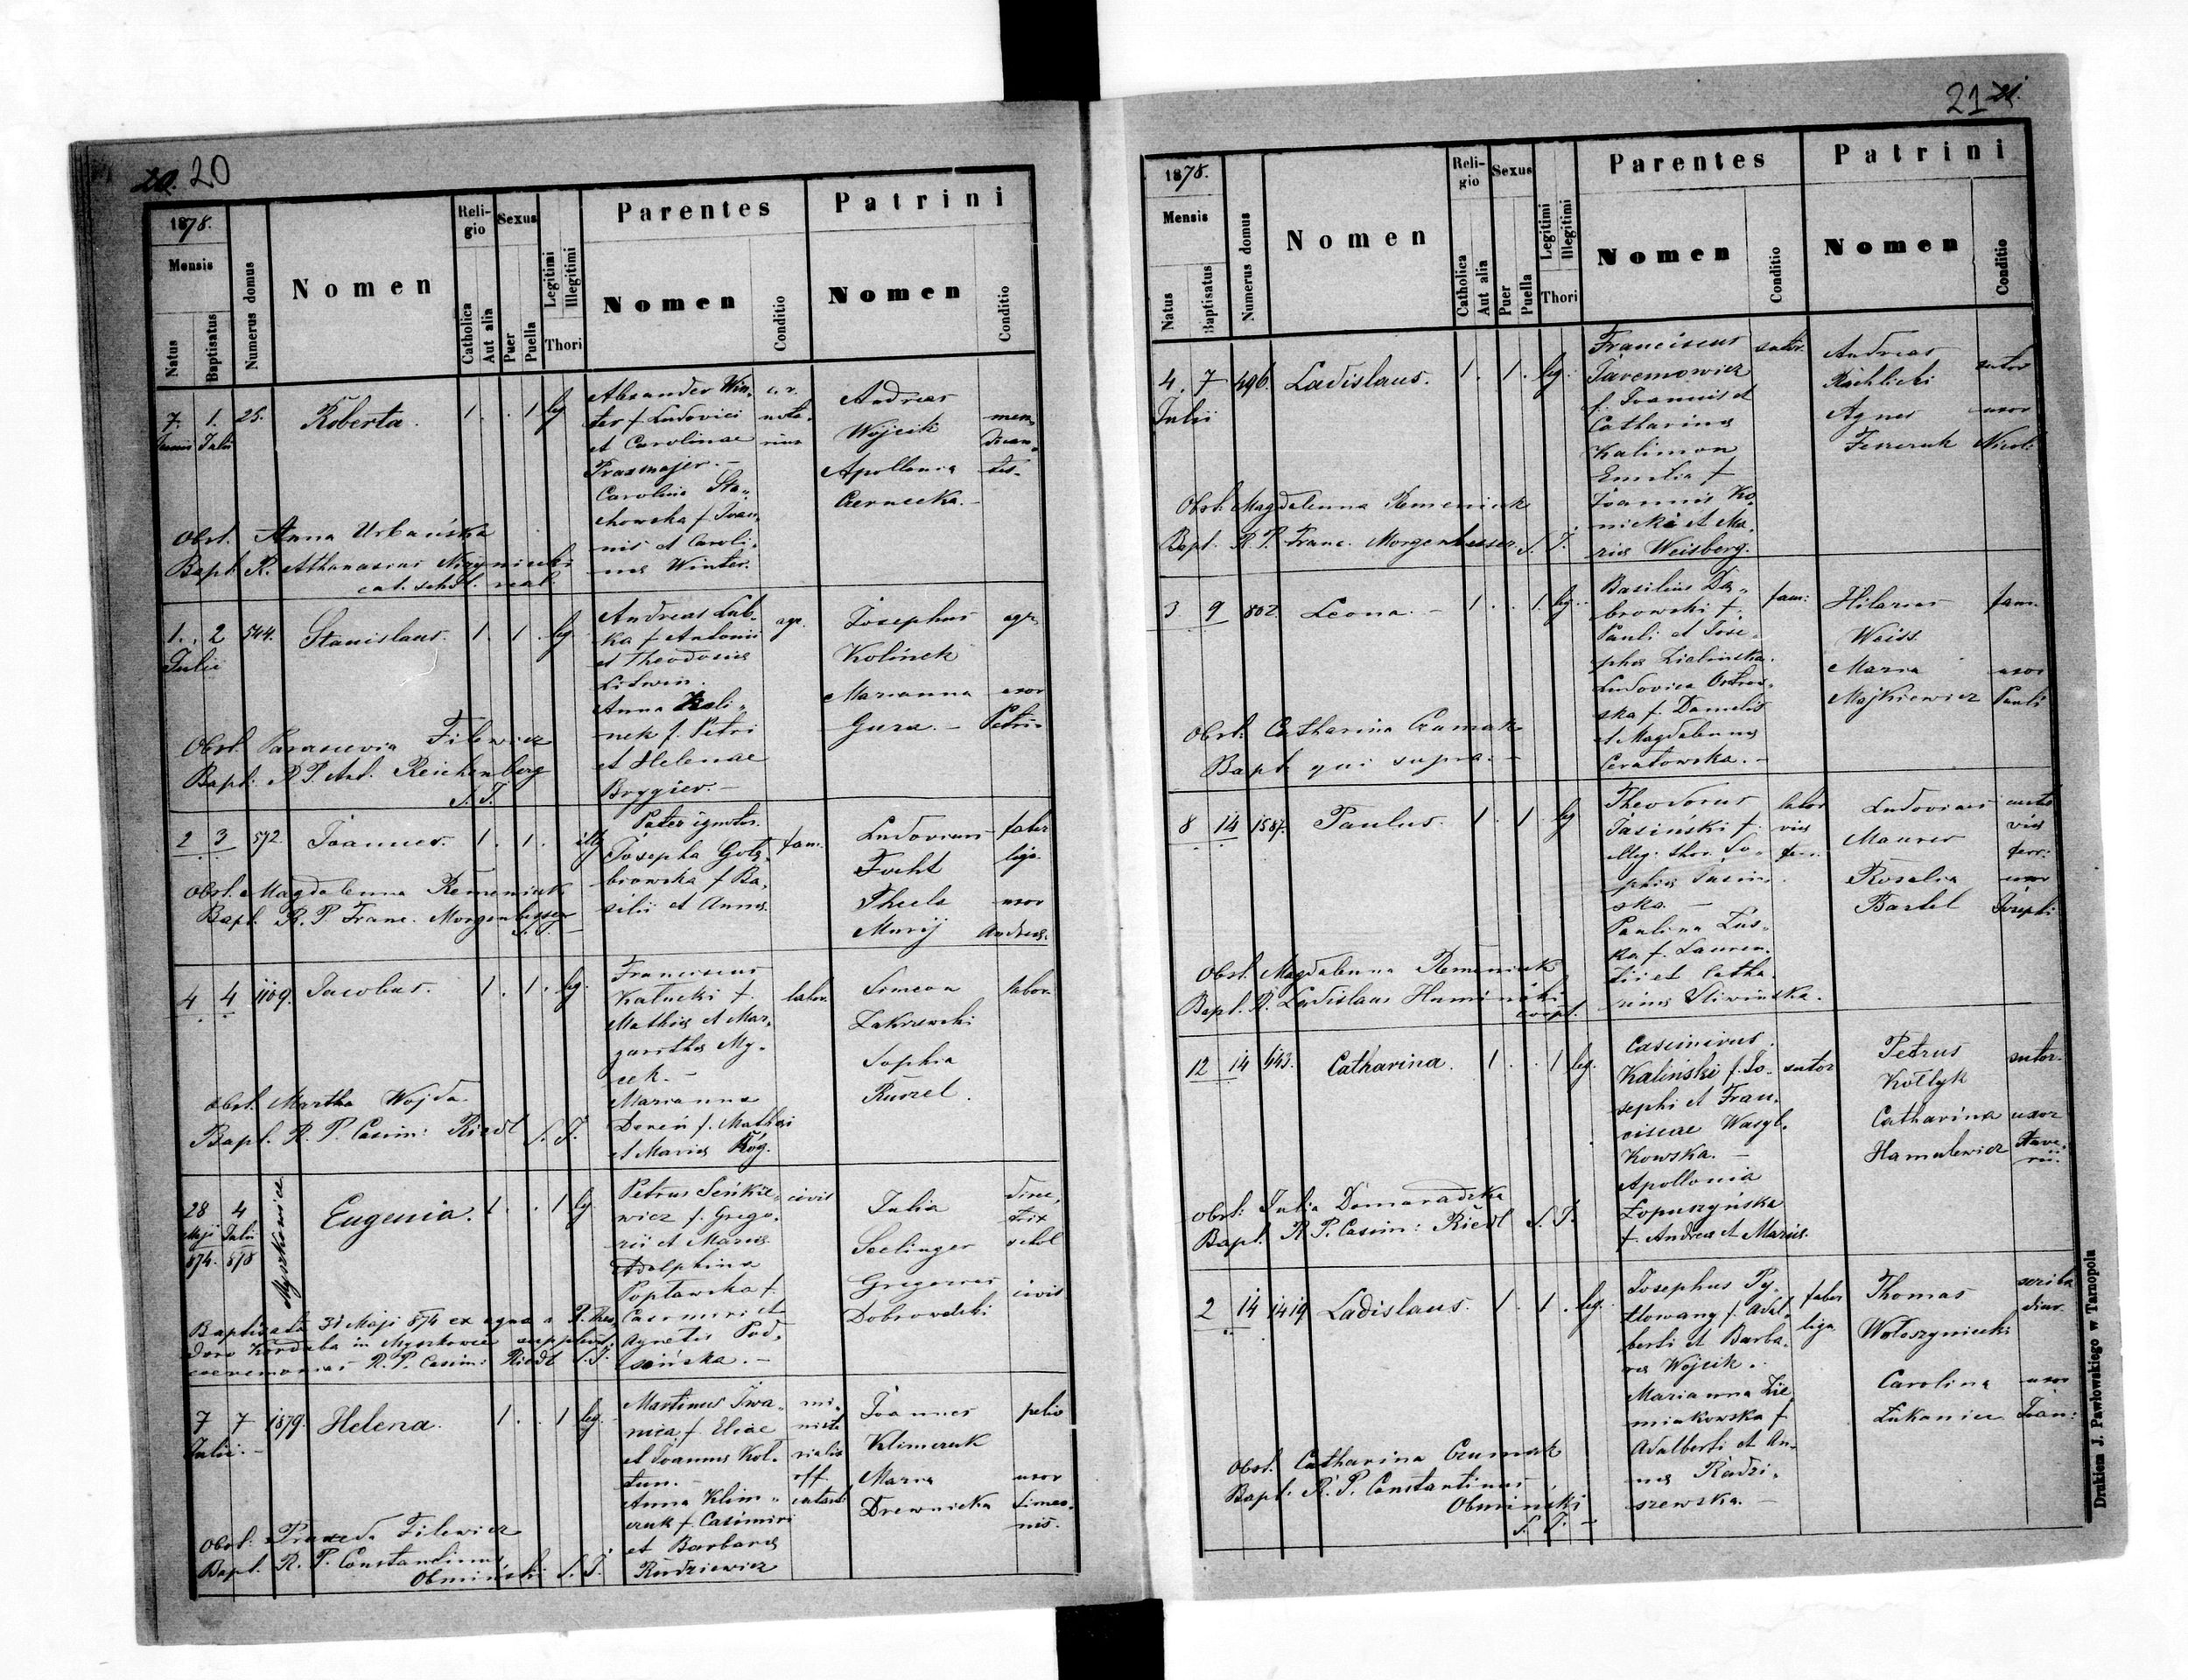 20. 20
1878.
Mensis
Natus
Baptisatus
Numerus domus
Nomen
Religio
Catholica
Aut alia
Sexus
Puer
Puella
Legitimi
Illegitimi
Thori
Parentes
Nomen
Conditio
Patrini
Nomen
Conditio
7. 1. 25. Roberta. 1. . . 1 leg
Junii Julii
Alexander Win„
ter f. Ludovici
et Carolinae
Praxmajer. –
Carolina Sta„
chowska f. Joan„
nis et Caroli„
nae Winter.
c. r.
nota„
rius
Andreas
Wojcik
Apollonia
Czernecka. –
men„
dican„
tes.
Obst. Anna Urbańska
Bapt. R. Athanasius Nizyniecki
cat. schol. real.
1. 2 544. Stanislaus. 1. 1. leg
Julii
Andreas Lub„
ka f. Antonii
et Theodosiae
Litwin.
Anna Kali„
nek f. Petri
et Helenae
Brygier. –
agr.
Josephus
Kolinek
Marianna
Gura. –
agr.
uxor
Petri
Obst. Parascevia Filewicz
Bapt. R. P. Ant. Reichenberg
S. J.
2 3 572. Joannes. 1. 1. illg
Pater ignotus.
Josepha Golę„
biowska f. Ba„
silii et Annae.
fam.
Ludovicus
Focht
Thecla
Murij
faber
lign.
uxor
Andreae.
Obst. Magdalenna Remeniuk
Bapt. R. P. Franc. Morgenbesser
S. J. –
4 4 1109. Jacobus. 1. 1. leg.
Franciscus
Kałucki f.
Mathiae et Mar„
garithae My„
cek. –
Marianna
Dereń f. Mathaei
et Mariae Róg.
labor.
Simeon
Zakrzewski
Sophia
Ruszel.
labor.
Obst. Martha Wojda.
Bapt. R. P. Casim: Riedl S. J.
28 4 Myszkowice Eugenia. 1. . 1 leg
Maji Julii
874. 878
Petrus Sieńkie„
wicz f. Grego„
rii et Mariae
Adolphina
Popławska f.
Casimiri et
Agnetis Pod„
sońska. –
civis
Julia
Seelinger
Gregorius
Dobrowolski
direc„
trix
schol
civis
Baptisata 31 Maji 874 ex aqua a R. Theo„
doro Korduba in Myszkowice supplevit
ceremonias R. P. Casim: Riedl S. J.
7 7 1879. Helena. 1. . 1 leg.
Julii. –
Martinus Iwa„
nica f. Eliae
et Joannae Kol„
tun. –
Anna Klim„
czuk f. Casimiri
et Barbarae
Rudziewicz
mi„
niste
rialis
off.
Joannes
Klimczuk
Maria
Drewnicka
pelio
uxor
Simeo„
nis.
Obst: Praxeda Filewicz
Bapt. R. P. Constantinus
Obmiński S. J.
21 21.
1878.
Mensis
Natus
Baptisatus
Numerus domus
Nomen
Religio
Catholica
Aut alia
Sexus
Puer
Puella
Legitimi
Illegitimi
Thori
Parentes
Nomen
Conditio
Patrini
Nomen
Conditio
4. 7 496. Ladislaus. 1. 1. leg.
Julii
Franciscus
Jaremowicz
f. Joannis et
Catharinae
Kalimon
Emilia f.
Joannis Ko„
nicki et Ma„
riae Weisberg.
sutor.
Andreas
Rachlicki
Agnes
sutor
uxor
Nicol:
Obst. Magdalenna Remeniuk
Bapt. R. P. Franc. Morgenbesser S. J.
3 9 802. Leona. – 1. . 1. leg.
Basilius Dą„
browski f.
Pauli et Jose„
phae Zielinska.
Ludovica Ostrow„
ska f. Danielis
et Magdalennae
Ceratowska. –
fam:
Hilarius
Weiss.
Maria
Majkiewicz
fam.
uxor
Pauli
Obst. Catharina Czumak
Bapt. qui supra. –
8 14 1587. Paulus. 1. 1 leg
Theodorus
Jasiński f.
illeg. thor. So„
phiae Jasiń„
ska. –
Paulina Lus„
ka f. Lauren„
tii et Catha„
rinae Sliwińska.
labor
viae
ferr.
Ludovicus
Maurer
Rosalia
Bartel
custo
viae
ferr:
uxor
Josephi
Obst. Magdalenna Remeniuk
Bapt. R. Ladislaus Humiński
coop.
12 14 643. Catharina. 1. . 1 leg.
Casimirus
Kaliński f. Jo„
sephi et Fran„
ciscae Wasyl„
kowska. –
Apollonia
Łopuszyńska
f. Andreae et Mariae.
sutor
Petrus
Kołtyk
Catharina
Hamulewicz
sutor.
uxor
Obst: Julia Domaradzka
Bapt. R. P. Casim: Riedl S. J.
2 14 1419 Ladislaus. 1. 1. leg.
Josephus Py„
tlowany f. Adal„
berti et Barba„
rae Wojcik.
Marianna Zie„
miakowska f.
Adalberti et An„
nae Radzi„
szewska. –
faber
lign
Thomas
Wołoszyniecki
Carolina
Łukaniec
scriba
diur.
uxor
Joan:
Obst. Catharina Czumak
Bapt. R. P. Constantinus
Obmiński
S. J. –
Drukiem J. Pawłowskiego w Tarnopolu